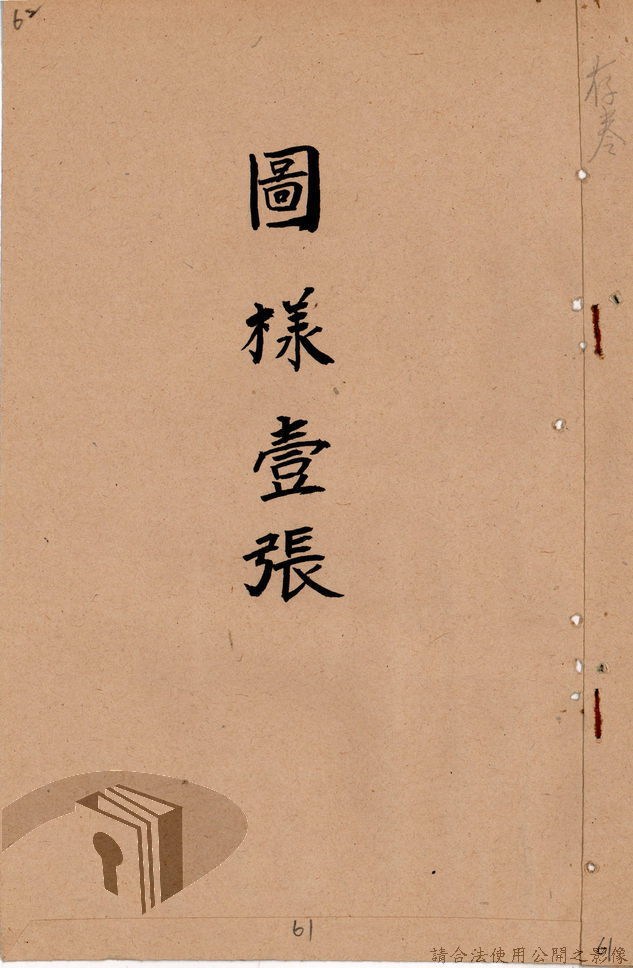 62
存卷
圖樣壹張
61
61
請合法使用公開之影像